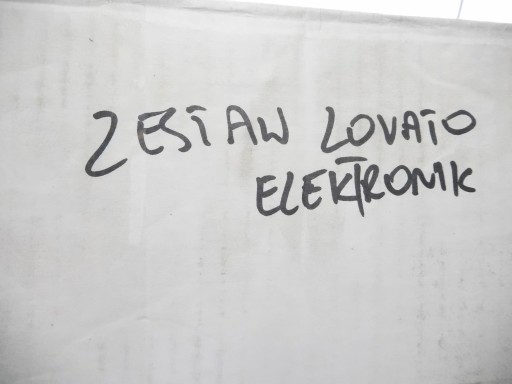 ZESTAW LOVATO
ELEKTRONIK